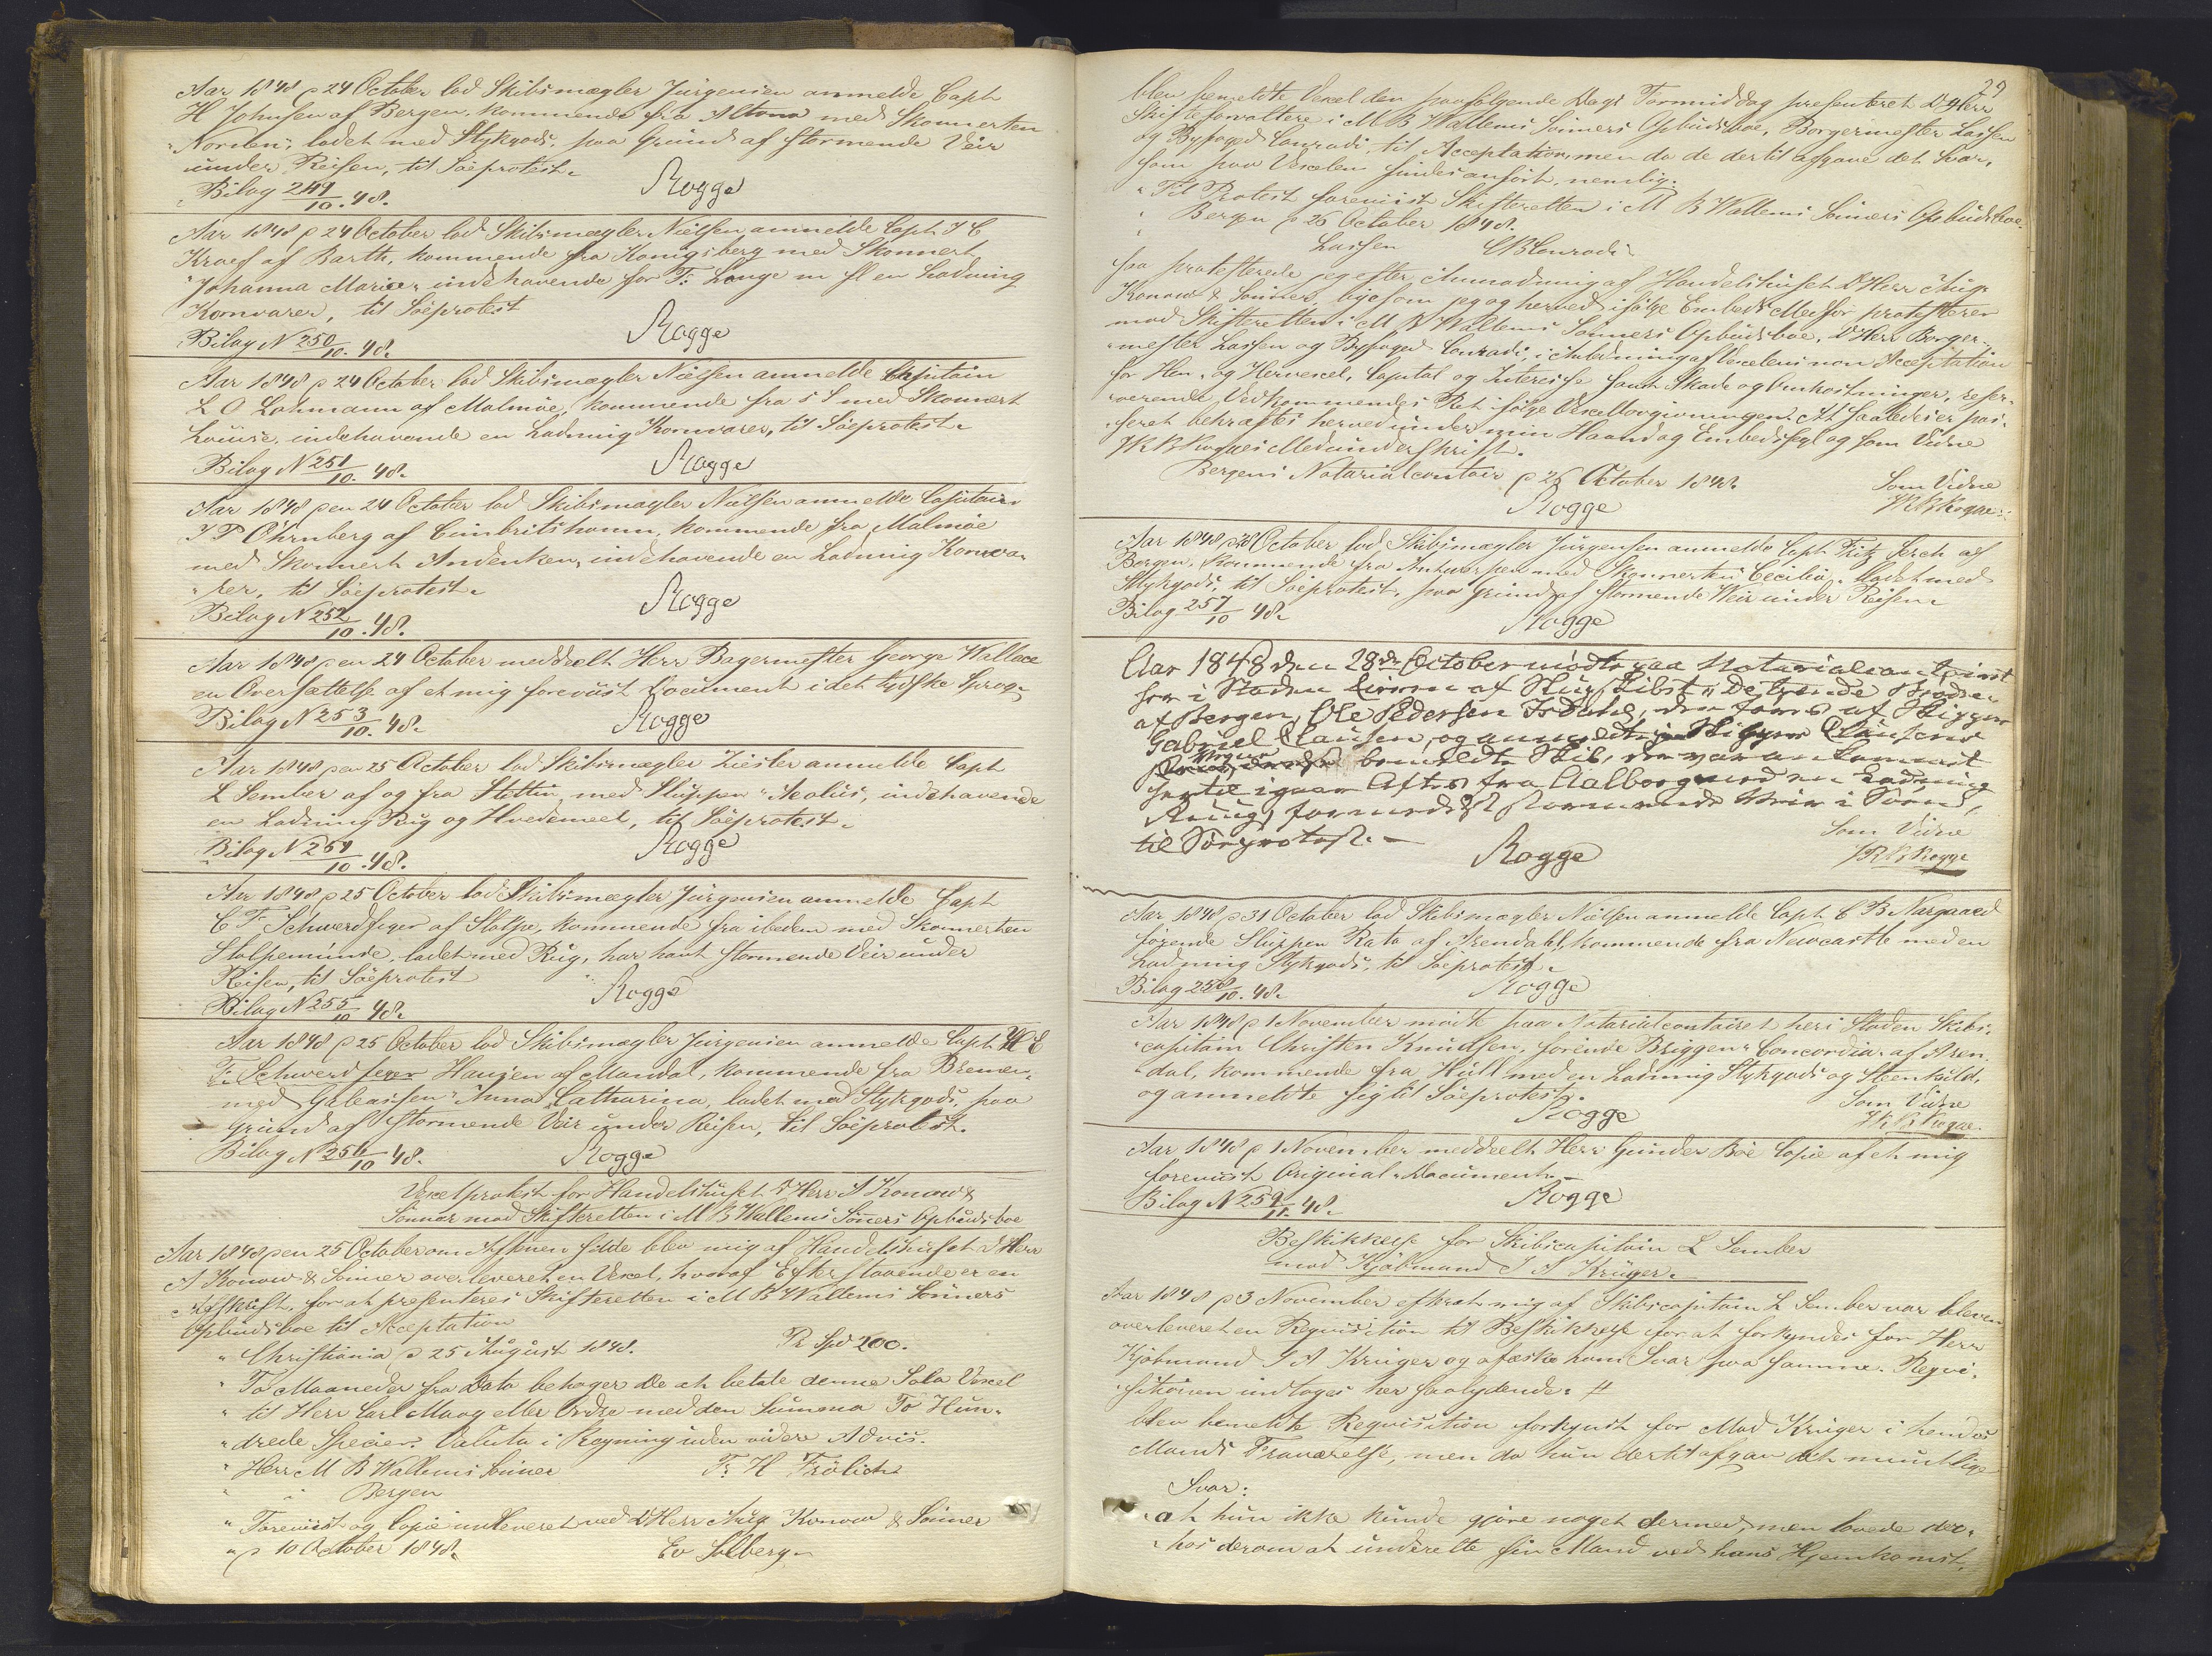 Aar 1848 p 24 October lod Skibsmægler Jürgensen anmelde Capt
H Johnsen af Bergen, kommende fra Altona med Skonnerten
"Norden", ladet med Stykgods, paa Grund af stormende Veir
under Reisen, til Søeprotest.
Bilag 249/10. 48. Rogge
Aar 1848 p 24 October lod Skibsmægler Nielsen anmelde Capt J C
Kraef af Barth, kommende fra Königsberg med Skonnert
"Johanna Maria" indehavende for F: Lange m fl en Ladning
Kornvarer, til Søeprotest
Bilag N 250/10. 48. Rogge
Aar 1848 p 24 October lod Skibsmægler Nielsen anmelde Capitain
L O Lohmann af Malmöe, kommende fra s S med Skonnert
Louise, indehavende en Ladning Kornvarer, til Søeprotest.
Bilag N 251/10. 48. Rogge
Aar 1848 den 24 October lod Skibsmægler Nielsen anmelde Capitain
J P Öhrnberg af Cimbritshamn, kommende fra Malmöe
med Skonnert Andenken, indehavende en Ladning Kornva-
"rer, til Søeprotest.
Bilag N 252/10. 48. Rogge
Aar 1848 den 24 October meddeelt Herr Bagermester George Wallace
en Oversættelse af et mig foreviist Document i det tydske Sprog.
Bilag N 253/10. 48. Rogge
Aar 1848 den 25 October lod Skibsmægler Ziesler anmelde Capt
L Sember af og fra Stettin, med Sluppen "Aeolus", indehavende
en Ladning Rug og Hvedemeel, til Søeprotest.
Bilag N 254/10. 48. Rogge
Aar 1848 p 25 October lod Skibsmægler Jürgensen anmelde Capt
C F Schwerdfeger af Stolpe, kommende fra ibidem med Skonnerten
Stolpemünde, ladet med Rug, har havt stormende Veir under
Reisen, til Søeprotest
Bilag N 255/10 48. Rogge
Aar 1848 p 25 October lod Skibsmægler Jürgensen anmelde Capt
F: Schwerdfeger Hansen af Mandal, kommende fra Bremen,
med Galeassen "Anna Catharina, ladet med Stykgods, paa
Grund af stormende Veir under Reisen, til Søeprotest.
Bilag N 256/10 48. Rogge
Vexelprotest for Handelshuset D'Herr A Konow &
Sønner mod Skifteretten i M B Wallems Sønners Opbudsboe
Aar 1848 den 25 October om Aftenen silde blev mig af Handelshuset D'Herr
A Konow & Sønner overleveret en Vexel, hvoraf Efterstaaende er en
Afskrift, for at presenteres Skifteretten i M B Wallems Sønners
Opbudsboe til Acceptation
" Christiania p 25 August 1848. Pr Spd 200.
" To Maaneder fra Dato behager De at betale denne Sola Vexel
" til Herr Carl Maag eller Ordre med den Summa To Hun-
" drede Specier. Valuta i Regning uden videre Advis.
" Herr M B Wallems Sønner Fr: H Frölich
" i Bergen
" Foreviist og Copie indleveret ved D'Herr Aug Konow & Sønner
" p 10 October 1848. Ev Solberg
29
blev bemeldte Vexel den paafølgende Dags Formiddag presenteret D'Herr
Skifteforvaltere i M B Wallems Sønners Opbudsboe, Borgermester Lassen
og Byfoged Conradi, til Acceptation, men da de dertil afgave det Svar,
som paa Vexelen findes anført, nemlig:
" Til Protest foreviist Skifteretten i M B Wallems Sønners Opbudsboe.
" Bergen p 26 October 1848.
Lassen CB Conradi
saa protesterede jeg efter Anmodning af Handelshuset D'Herr Aug:
Konow & Sønner, ligesom jeg og herved ifølge Embeds Medfør protesterer
mod Skifteretten i M B Wallems Sønners Opbudsboe, D'Herr Borger-
"mester Lassen og Byfoged Conradi, i Anledning af Vexelens non Acceptation
for Hen- og Hervexel, Capital og Interesse samt Skade og Omkostninger, reser-
verende Vedkommendes Ret ifølge Vexellovgivningen. At saaledes er pas-
"seret bekræftes herved under min Haand og Embedssegl og som Vidne
J R B Rogges Medunderskrift.
Bergens Notarialcontoir p 26 October 1848. Som Vidne
Rogge JRBRogge
Aar 1848 p 28 October lod Skibsmægler Jürgensen anmelde Capt Fritz Lerch af
Bergen, kommende fra Antwerpen med Skonnerten Cecilia, ladet med
Stykgods, til Søeprotest, paa Grund af stormende Veir under Reisen.
Bilag 257/10 48. Rogge
Aar 1848 den 28de October mødte paa Notarialcontoiret
her i Staden Eieren af Slup Skibet "De trende Brødre"
af Bergen, Ole Pedersen Isdahl, den føres af Skipper
Gabriel Clausen, og anmeldte Skipper Clausens
bemeldte Skib, der var ankommet
hertil igaar Aftes fra Aalborg med en Ladning
Rug, formedelst stormende Veir i Søen,
til Søeprotest. — Som Vidne
Rogge JRBRogge
Aar 1848 p 31 October lod Skibsmægler Nielsen anmelde Capt C B Nærgaard
førende Sluppen Rata af Arendahl, kommende fra Newcastle med en
Ladning Stykgods, til Søeprotest.
Bilag 258/10. 48. Rogge
Aar 1848 p 1 November mødte paa Notarialcontoiret her i Staden Skibs-
"capitain Christen Knudsen, førende Briggen "Concordia" af Aren-
"dal, kommende fra Hull med en Ladning Stykgods og Steenkul,
og anmeldte sig til Søeprotest. Som Vidne
Rogge JRBRogge.
Aar 1848 p 1 November meddeelt Herr Gunder Bøe Copie af et mig
foreviist Original-Document.
Bilag N 259/11. 48. Rogge
Beskikkelse for Skibscapitain L Sember
mod Kjøbmand J A Krüger.
Aar 1848 p 3 November efterat mig af Skibscapitain L Sember var bleven
overleveret en Requisition til Beskikkelse for at forkyndes for Herr
Kjøbmand J A Krüger og afæske ham Svar paa samme. Reqvi-
"sitionen indtages her saalydende: #
blev bemeldte Requisition forkyndt for Mad Krüger i hendes
Mands Fraværelse, men da hun dertil afgav det mundtlige
Svar:
"at hun ikke kunde gjøre noget dermed, men lovede der-
"hos derom at underrette sin Mand ved hans Hjemkomst,